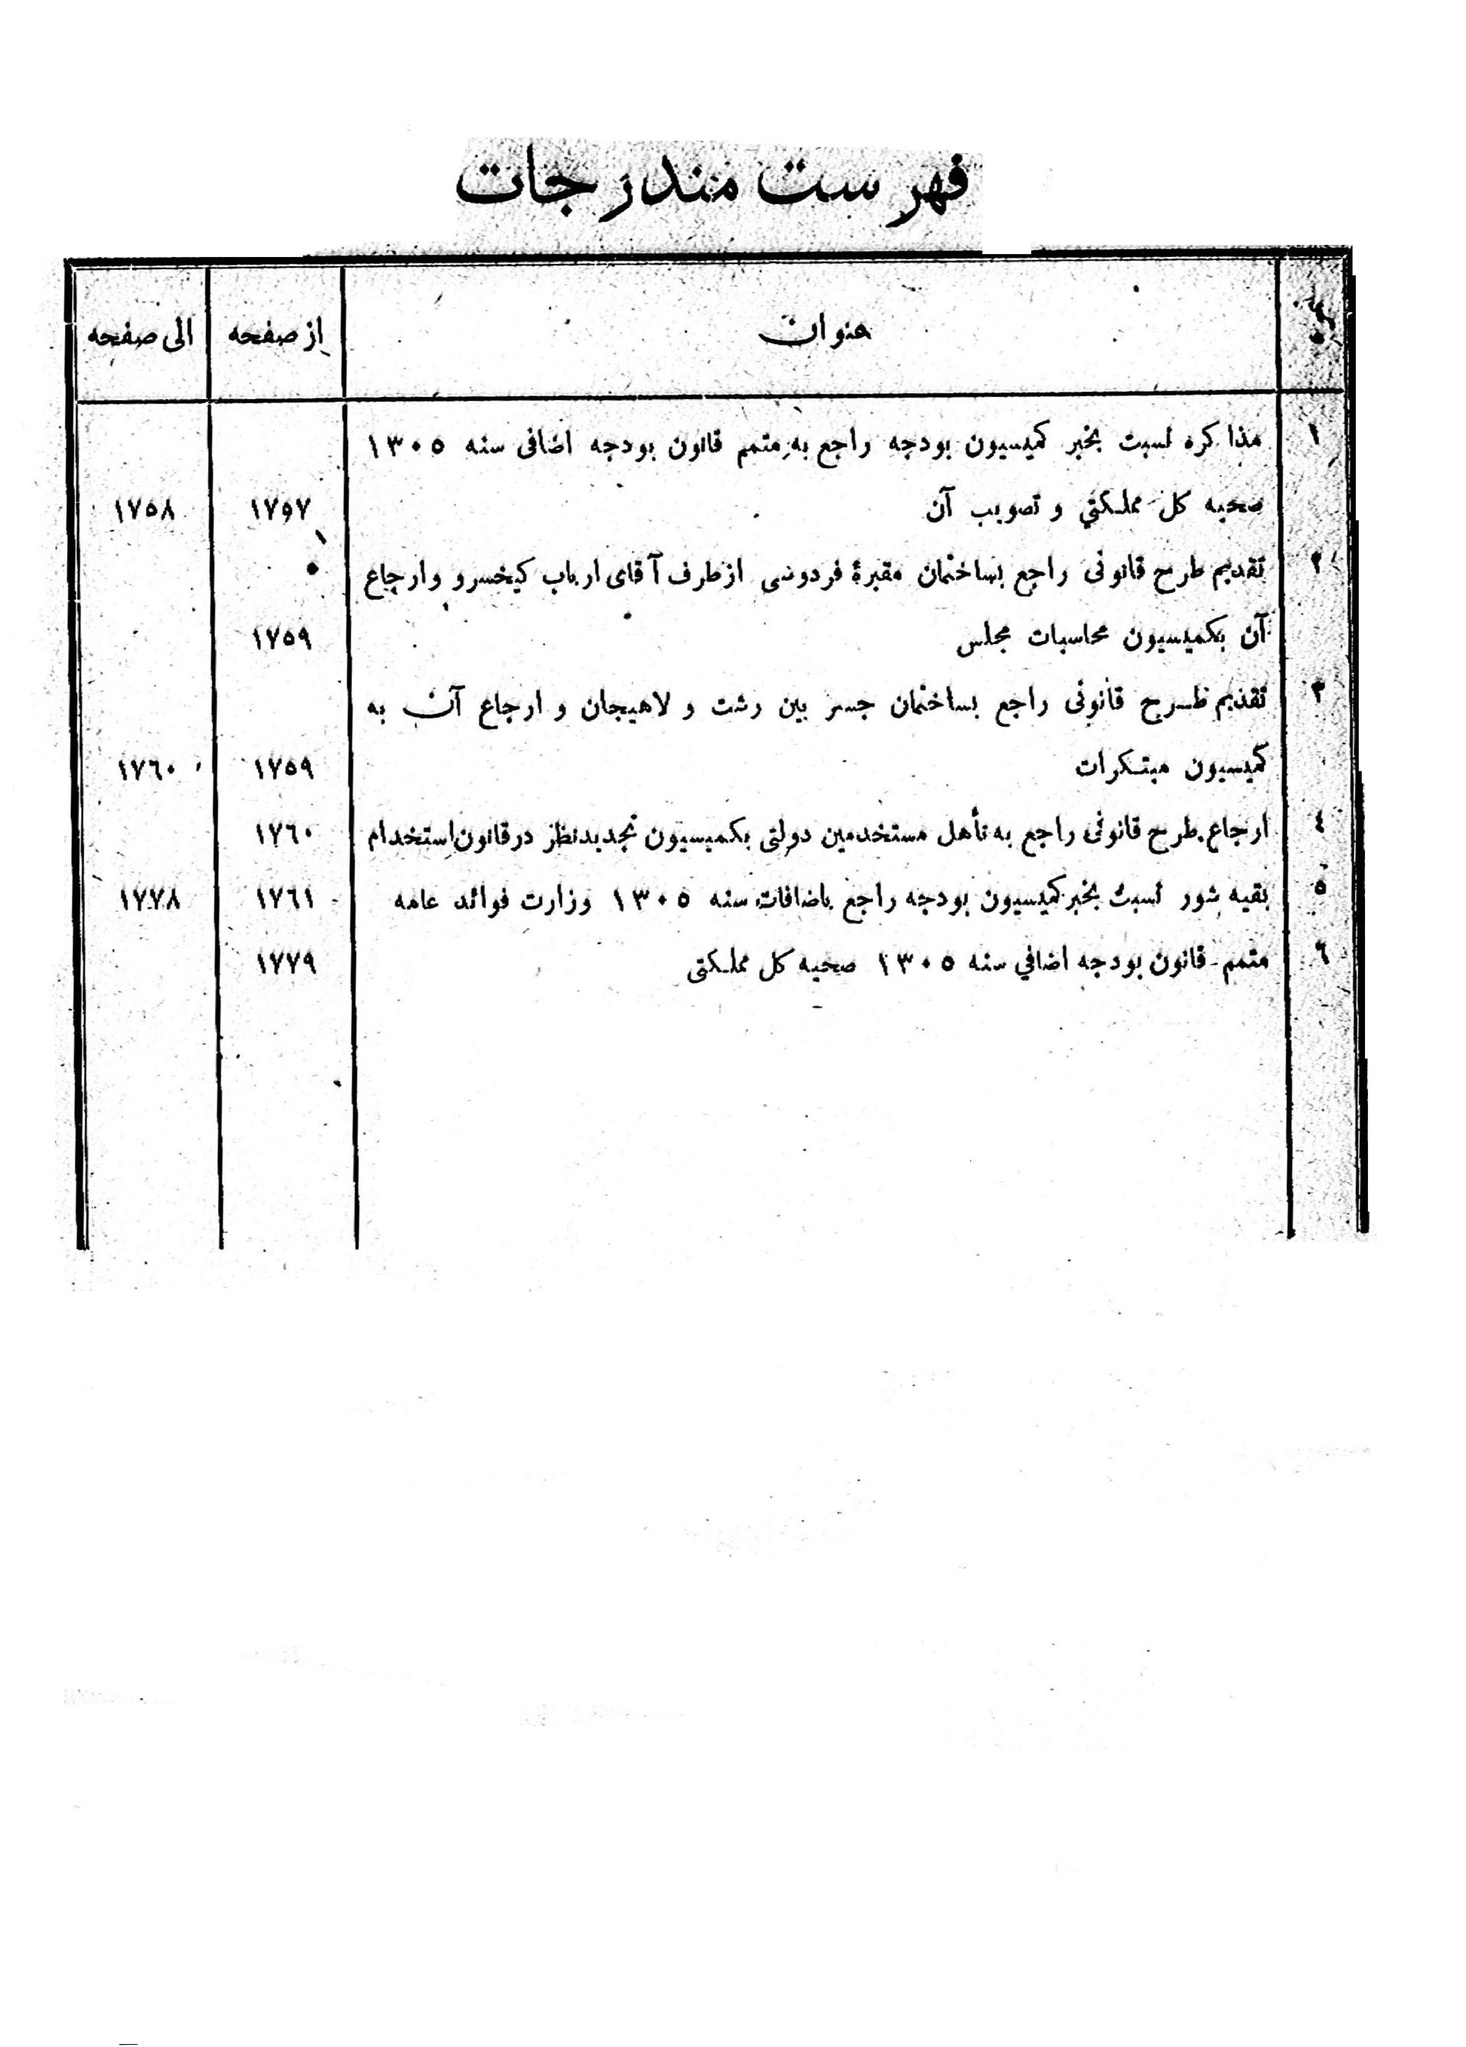 فهرست مندرجات
نمره عنوان از صفحه الی صفحه
۱ مذاکره نسبت بخبر کمیسیون بودجه راجع به متمم قانون بودجه اضافی سنه ۱۳۰۵
صحیه کل مملکتی و تصویب آن ۱۷۵۷ ۱۷۵۸
۲ تقدیم طرح قانونی راجع بساختمان مقبرهٔ فردوسی از طرف آقای ارباب کیخسرو و ارجاع
آن بکمیسیون محاسبات مجلس ۱۷۵۹
۳ تقدیم طرح قانونی راجع بساختمان جسر بین رشت و لاهیجان و ارجاع آن به
کمیسیون مبتکرات ۱۷۵۹ ۱۷۶۰
٤ ارجاع طرح قانونی راجع به تأهل مستخدمین دولتی بکمیسیون تجدیدنظر در قانون استخدام ۱۷۶۰
۵ بقیه شور نسبت بخبر کمیسیون بودجه راجع باضافات سنه ۱۳۰۵ وزارت فوائد عامه ۱۷۶۱ ۱۷۷۸
٦ متمم قانون بودجه اضافی سنه ۱۳۰۵ صحیه کل مملکتی ۱۷۷۹